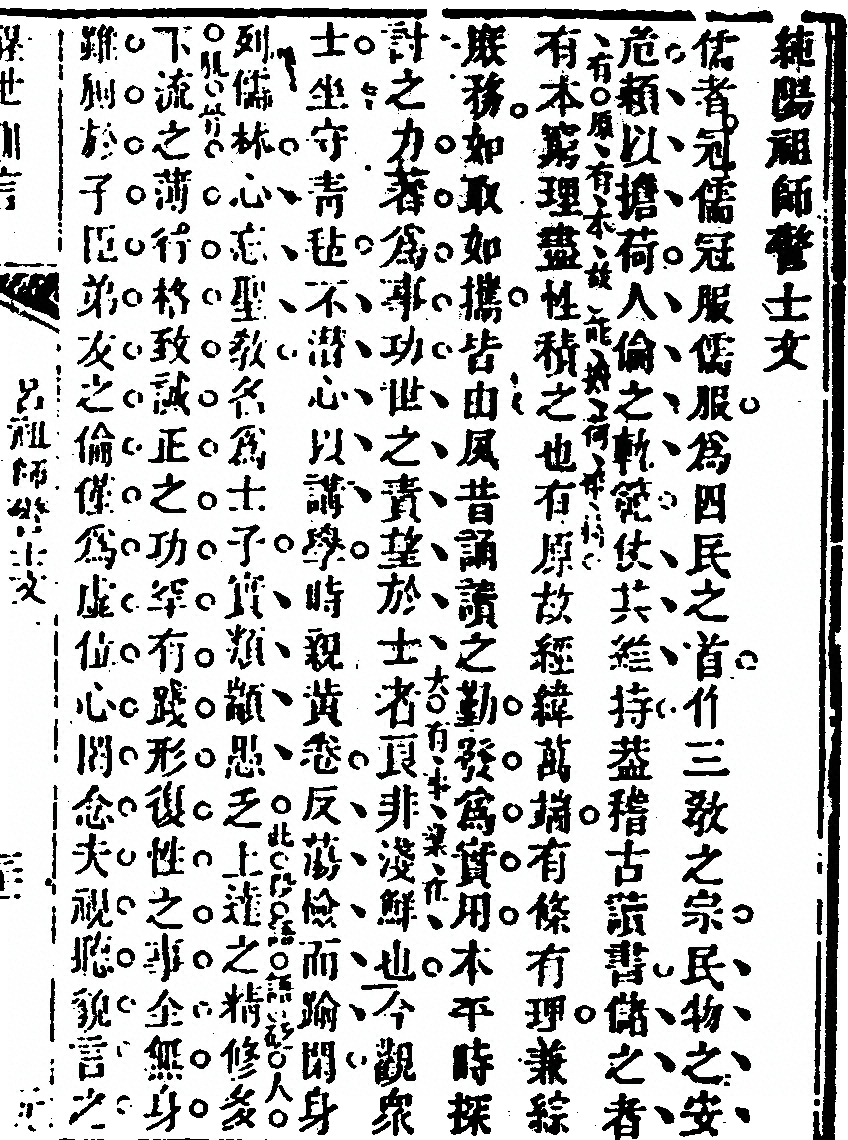 純陽祖師警士文
儒者冠儒冠服儒服為四民之首作三敎之宗民物之安
危賴以擔荷人倫之軌範仗其維持葢稽古讀書儲之者
有原有本故能擔荷維持
有本窮理盡性積之也有原故經緯萬端有條有理兼綜
庶務如取如攜皆由夙昔誦讀之勤發為實用本平時探
討之力著為事功世之責望於士者良非淺鮮也今觀衆
大有本業在
士坐守靑毡不潛心以講學時親黃卷反蕩檢而踰閑身
列儒林心忘聖敎名爲士子實類顓愚乏上達之精修多
此叚語語砭人肌骨
下流之薄行格致誠正之功罕有踐形復性之事全無身
雖列於子臣弟友之倫僅爲虛位心罔念夫視聽貌言之
呂祖師警士文